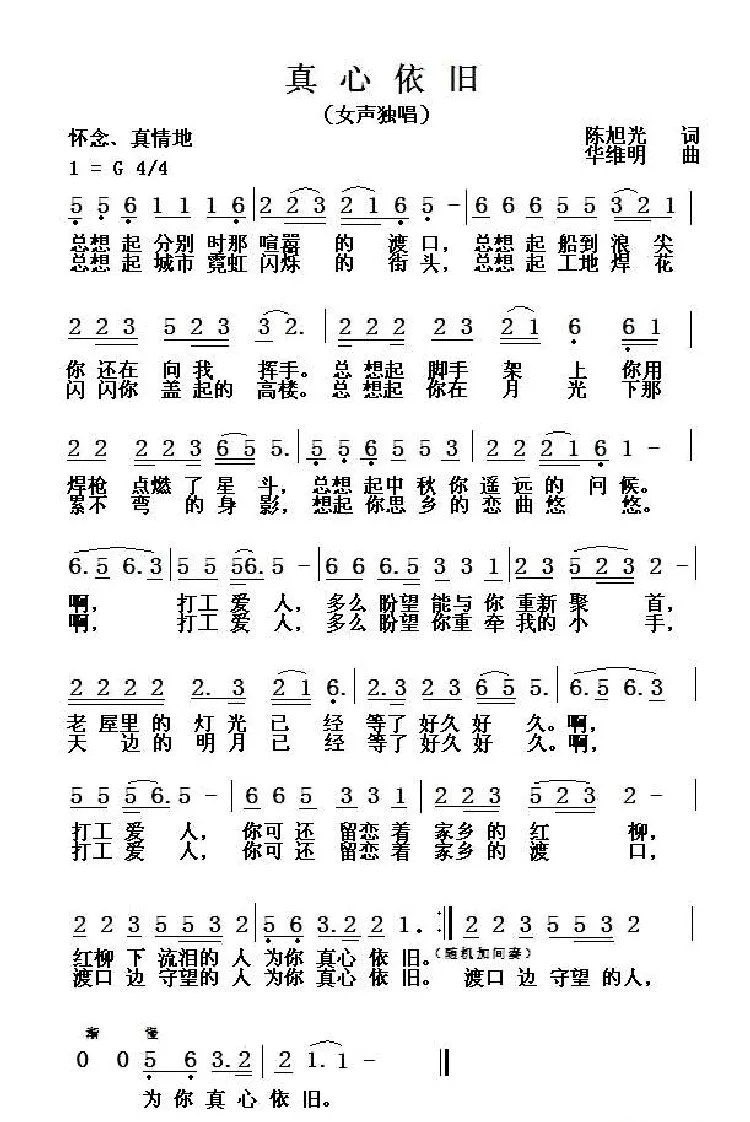 真心依旧
（女声独唱）
怀念、真情地
陈旭光 词
1 = G 4/4
华维明 曲
5 5 6 1 1 1 6 | 2 2 3 2 1 6 5 - | 6 6 6 5 5 3 2 1 |
总想起分别时那喧嚣的渡口，总想起船到浪尖
总想起城市霓虹闪烁的街头，总想起工地焊花
2 2 3 5 2 3 3 2. | 2 2 2 2 3 2 2 1 6 6 1 |
你还在向我挥手。总想起脚手架上你用
闪闪你盖起的高楼。总想起你在月光下那
2 2 2 2 3 6 5 5. | 5 5 6 5 5 3 2 2 2 1 6 1 - |
焊枪点燃了星斗，总想起中秋你遥远的问候。
累不弯的身影，想起你思乡的恋曲悠悠。
6. 5 6. 3 | 5 5 5 6. 5 - | 6 6 6. 5 3 3 1 | 2 2 3 5 2 3 2 - |
啊，打工爱人，多么盼望能与你重新聚首，
啊，打工爱人，多么盼望你重牵我的小手，
2 2 2 2 2. 3 2 1 6. | 2. 3 2 3 6 5 5. | 6. 5 6. 3
老屋里的灯光已经等了好久好久。啊，
天边的明月已经等了好久好久。啊，
5 5 5 6. 5 - | 6 6 5 3 3 1 | 2 2 3 5 2 3 2 - |
打工爱人，你可还留恋着家乡的红柳，
打工爱人，你可还留恋着家乡的渡口，
2 2 3 5 5 3 2 | 5 6 3. 2 2 1. :|| 2 2 3 5 5 3 2 |
红柳下流泪的人为你真心依旧。（随机加间奏）
渡口边守望的人为你真心依旧。渡口边守望的人，
渐慢
0 0 5 6 3. 2 | 2 1. 1 - ||
为你真心依旧。